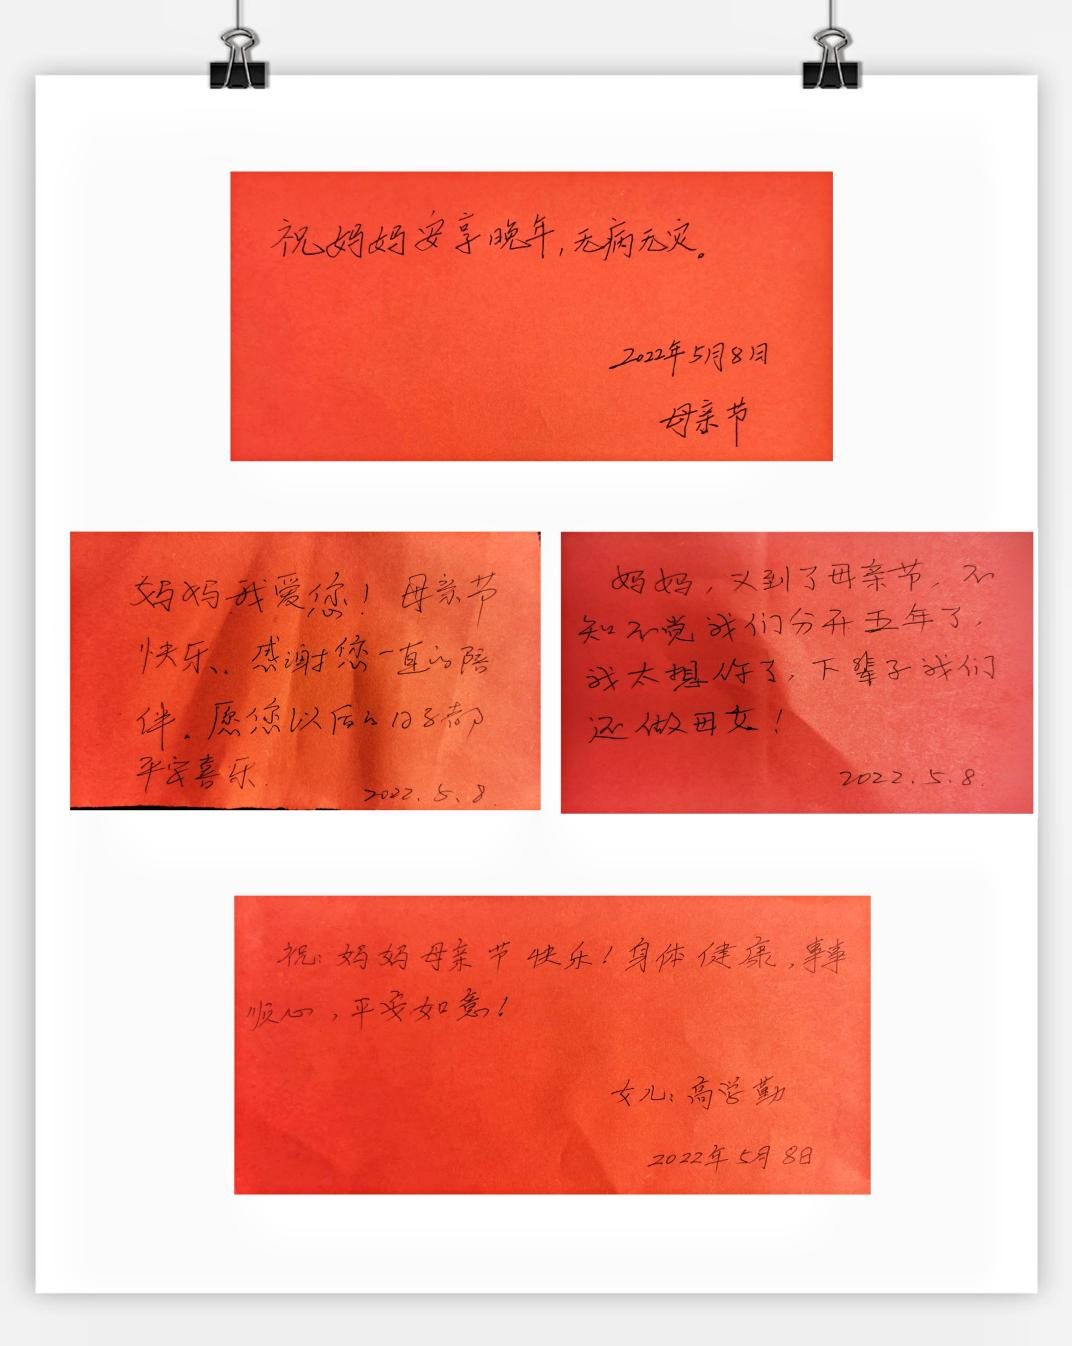 祝妈妈安享晚年,无病无灾。
2022年5月8日
母亲节
妈妈我爱您！母亲节
快乐、感谢您一直的陪
伴。愿您以后的日子都
平安喜乐.
2022.5.8
妈妈，又到了母亲节，不
知不觉我们分开五年了，
我太想你了，下辈子我们
还做母女！
2022.5.8.
祝：妈妈母亲节快乐！身体健康，事事
顺心，平安如意！
女儿：高学勤
2022年5月8日